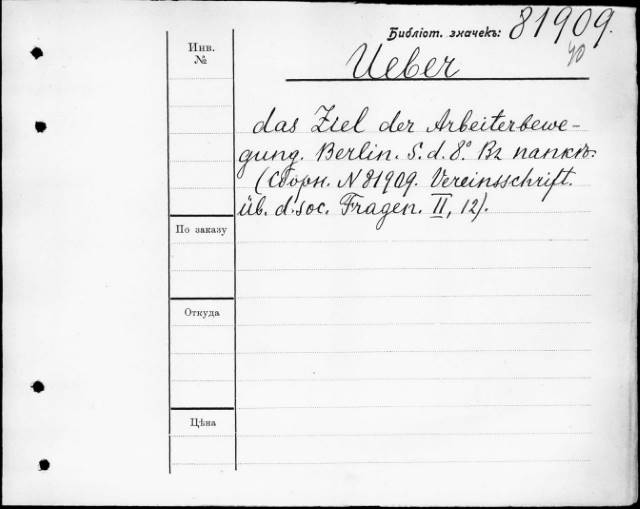 Библіот. значекъ: 81909.
40
Инв.
№
Ueber
das Ziel der Arbeiterbewe-
gung. Berlin. S. d. 8°. Въ папкѣ.
(Сборн. N 81909. Vereinsschrift.
üb. d. soc. Fragen. II, 12).
По заказу
Откуда
Цѣна